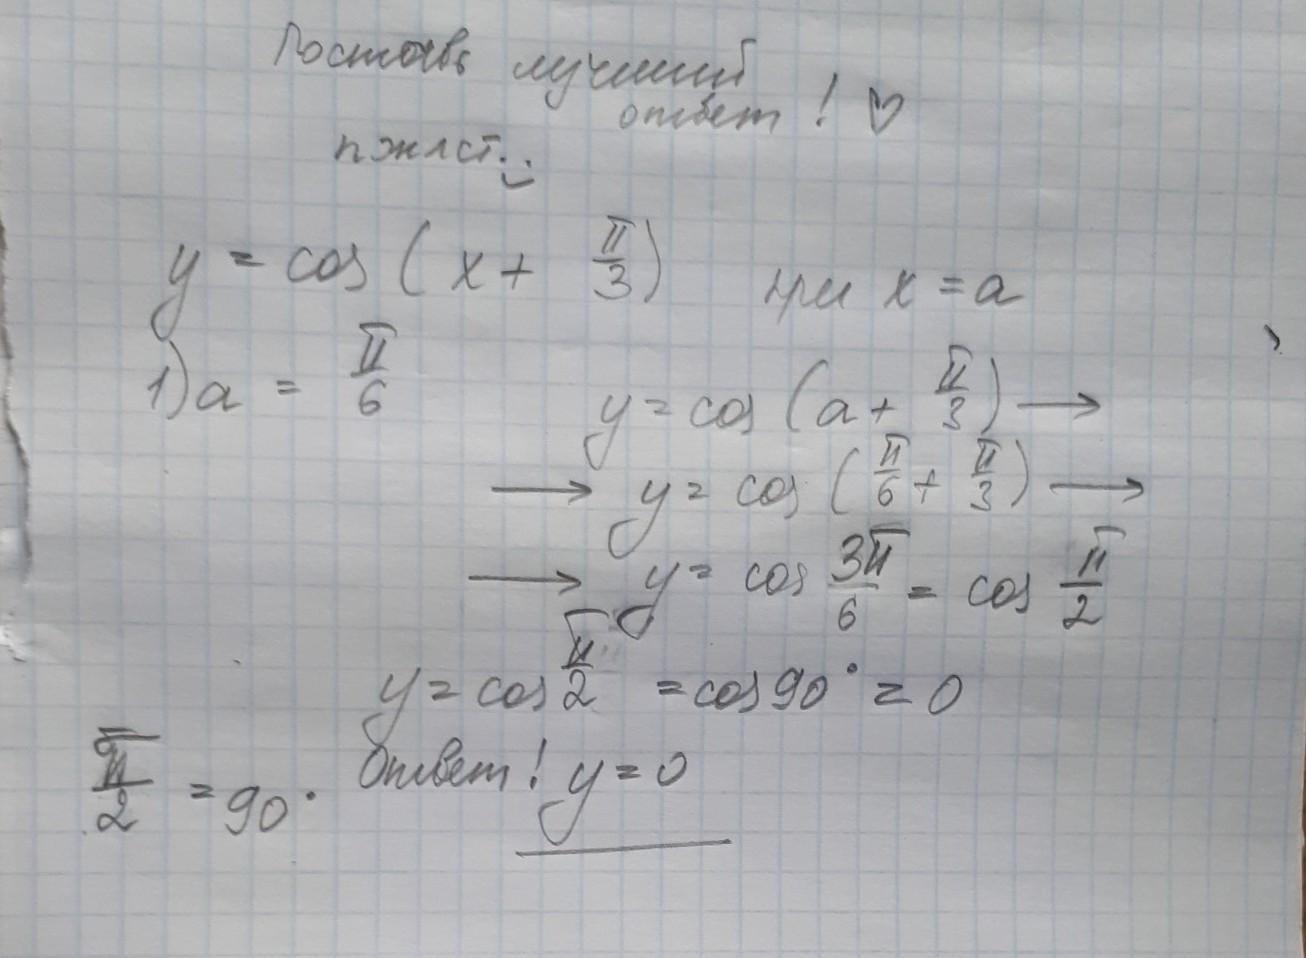 Поставь лучший
ответ! ♡
пжлст
y = cos (x + π/3) при x = a
1) a = π/6
y = cos (a + π/3) →
→ y = cos (π/6 + π/3) →
→ y = cos 3π/6 = cos π/2
y = cos π/2 = cos 90° = 0
π/2 = 90° Ответ! y = 0